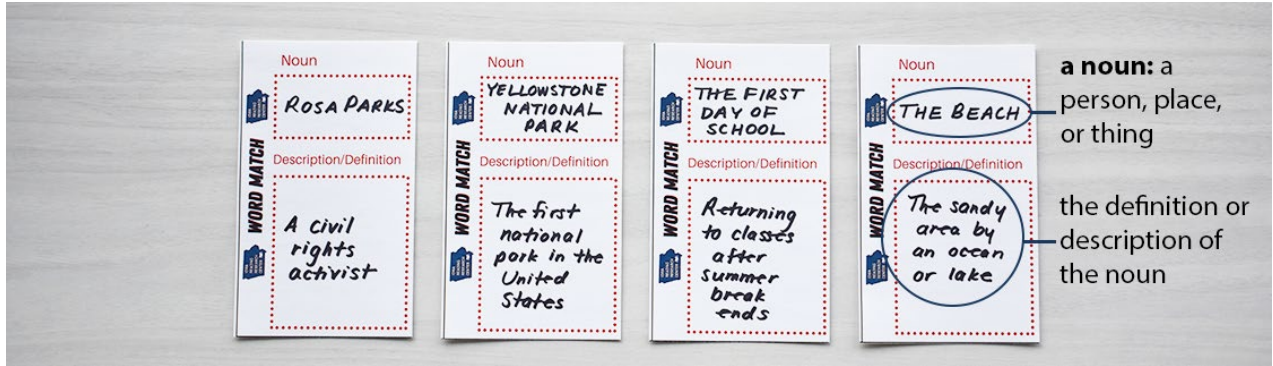 Noun
ROSA PARKS
Description/Definition
A civil
rights
activist
WORD MATCH
Noun
YELLOWSTONE
NATIONAL
PARK
Description/Definition
The first
national
park in the
United
States
WORD MATCH
Noun
THE FIRST
DAY OF
SCHOOL
Description/Definition
Returning
to classes
after
summer
break
ends
WORD MATCH
Noun
THE BEACH
Description/Definition
The sandy
area by
an ocean
or lake
WORD MATCH
a noun: a
person, place,
or thing
the definition or
description of
the noun